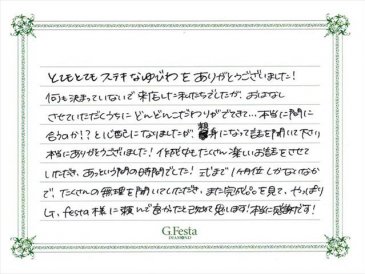 とてもとてもステキなゆびわをありがとうございました！
何も決まっていないで来店した私たちでしたが、おはなし
させていただくうちに どんどんこだわりがでてきて…本当に間に
合うのか！？と心配になりましたが、親身になって話を聞いて下さり
本当にありがとうございました！作成中もたくさん楽しいお話をさせて
いただき、あっという間の時間でした！式まで1ヶ月位しかないなか
で、たくさんの無理を聞いていただき、また完成品を見て、やっぱり
G.festa様に頼んで良かったと改めて思います！本当に感謝です！
G.Festa
DIAMOND